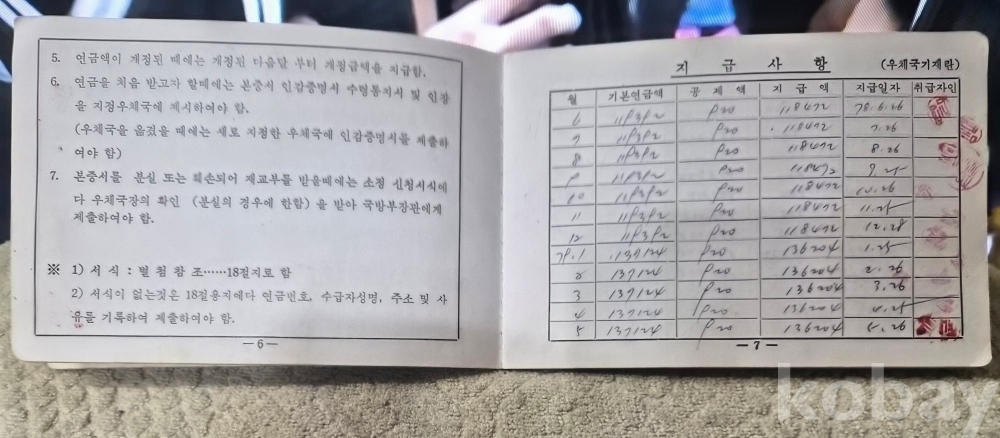 5. 연금액이 개정된 때에는 개정된 다음달 부터 개정금액을 지급함.
6. 연금을 처음 받고자 할때에는 본증서 인감증명서 수령통지서 및 인장
을 지정우체국에 제시하여야 함.
(우체국을 옮겼을 때에는 새로 지정한 우체국에 인감증명서를 제출하
여야 함)
7. 본증서를 분실 또는 훼손되어 재교부를 받을때에는 소정 신청서식에
다 우체국장의 확인 (분실의 경우에 한함) 을 받아 국방부장관에게
제출하여야 함.
※ 1) 서 식 : 별 첨 참 조……18절지로 함
2) 서식이 없는것은 18절용지에다 연금번호, 수급자성명, 주소 및 사
유를 기록하여 제출하여야 함.
—6—
지 급 사 항 (우체국기재란)
월 기본연금액 공 제 액 지 급 액 지급일자 취급자인
6 118472 78.6.26
7 118472 7.26
8 118472 8.26
9 9.25
10 118472 10.26
11 118472 11.25
12 118472 12.28
79.1 137124 136204 1.25
2 137124 136204 2.26
3 137124 136204 3.26
4 137124 136204 4.25
5 137124 136204 5.26
—7—
kobay